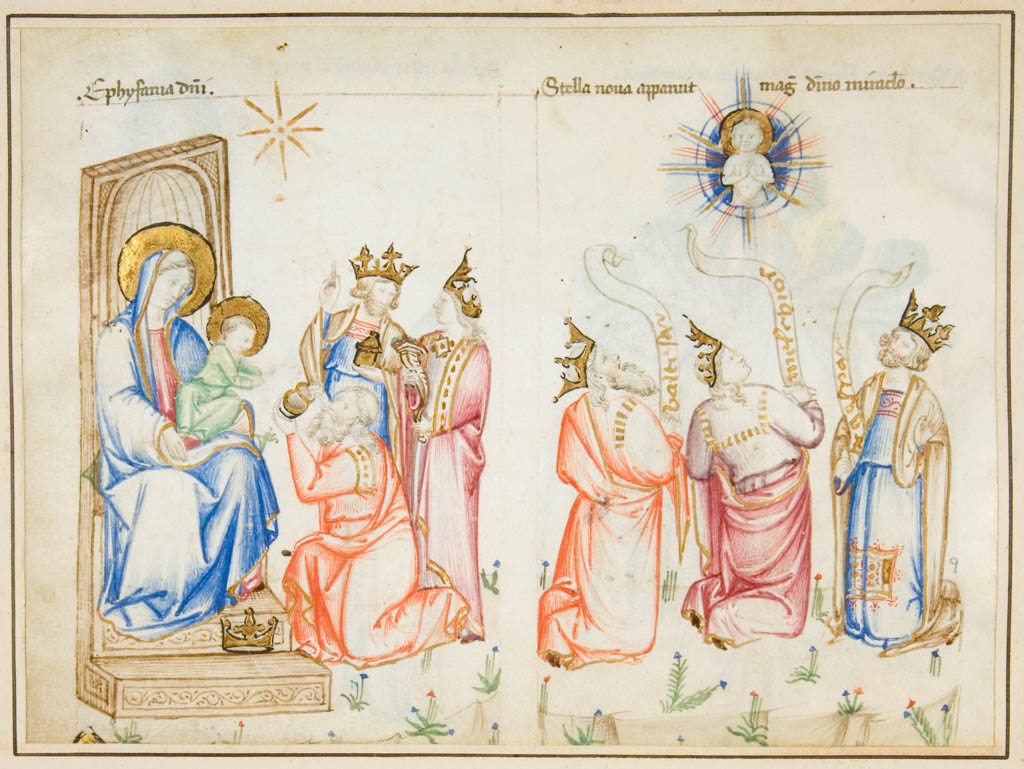 .Ephyfania dñi.
Stella noua apparuit mag̃ dĩno miraclo.
baltisar
melchior
gaspar
9